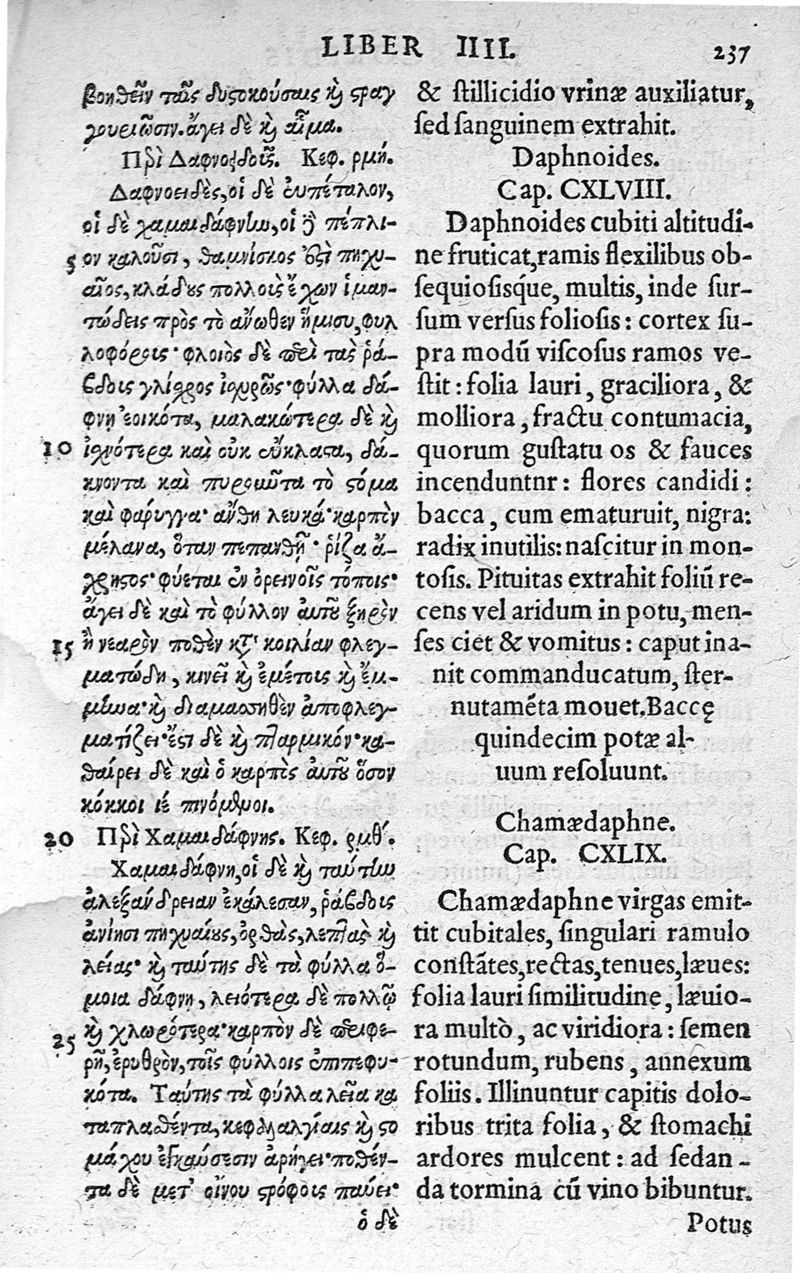 LIBER IIII. 237
βοηθεῖν ταῖς δυστοκούσαις καὶ στραγ
γουριῶσιν. ἄγει δὲ καὶ αἷμα.
Περὶ Δαφνοειδοῦς. Κεφ. ρμή.
Δαφνοειδὲς, οἱ δὲ εὐπέταλον,
οἱ δὲ χαμαιδάφνην, οἱ δὲ πέπλι-
5 ον καλοῦσι, θαμνίσκος ἐστὶ πηχυ-
αῖος, κλάδους πολλοὺς ἔχων ἱμαν-
τώδεις πρὸς τὸ ἄνωθεν ἥμισυ, φυλ
λοφόρους· φλοιὸς δὲ περὶ τὰς ῥά-
βδοις γλίσχρος ἰσχυρῶς· φύλλα δά-
φνῃ ἐοικότα, μαλακώτερα δὲ καὶ
10 ἰσχνότερα καὶ οὐκ εὔκλαστα, δά-
κνοντα καὶ πυροῦντα τὸ στόμα
καὶ φάρυγγα· ἄνθη λευκά· καρπὸν
μέλανα, ὅταν πεπανθῇ· ῥίζα ἄ-
χρηστος· φύεται ἐν ὀρεινοῖς τόποις·
ἄγει δὲ καὶ τὸ φύλλον αὐτοῦ ξηρὸν
15 ἢ νεαρὸν ποθὲν κατὰ κοιλίαν φλεγ-
ματώδη, κινεῖ καὶ ἐμέτοις καὶ ἔμ-
μηνα· καὶ διαμασσηθὲν ἀποφλεγ-
ματίζει· ἔστι δὲ καὶ πταρμικόν· κα-
θαίρει δὲ καὶ ὁ καρπὸς αὐτοῦ ὅσον
κόκκοι ιέ πινόμενοι.
20 Περὶ Χαμαιδάφνης. Κεφ. ρμθʹ.
Χαμαιδάφνη, οἱ δὲ καὶ ταύτην
ἀλεξανδρειαν ἐκάλεσαν, ῥάβδοις
ἀνίησι πηχυαίους, ὀρθὰς, λεπτὰς καὶ
λείας· καὶ ταύτης δὲ τὰ φύλλα ὅ-
μοια δάφνῃ, λειότερα δὲ πολλῷ
25 καὶ χλωρότερα· καρπὸν δὲ περιφε-
ρῆ, ἐρυθρὸν, τοῖς φύλλοις ἐπιπεφυ-
κότα. Ταύτης τὰ φύλλα λεῖα κα
ταπλασθέντα, κεφαλαλγίαις καὶ στο
μάχου ἐγκαύσεσιν ἀρήγει· ποθέν-
τα δὲ μετ' οἴνου στρόφοις παύει·
ὁ δὲ
& stillicidio vrinæ auxiliatur,
sed sanguinem extrahit.
Daphnoides.
Cap. CXLVIII.
Daphnoides cubiti altitudi-
ne fruticat, ramis flexilibus ob-
sequiosisq́ue, multis, inde sur-
sum versus foliosis: cortex su-
pra modũ viscosus ramos ve-
stit: folia lauri, graciliora, &
molliora, fractu contumacia,
quorum gustatu os & fauces
incenduntnr: flores candidi:
bacca, cum ematuruit, nigra:
radix inutilis: nascitur in mon-
tosis. Pituitas extrahit foliũ re-
cens vel aridum in potu, men-
ses ciet & vomitus: caput ina-
nit commanducatum, ster-
nutamẽta mouet. Baccę
quindecim potæ al-
uum resoluunt.
Chamædaphne.
Cap. CXLIX.
Chamædaphne virgas emit-
tit cubitales, singulari ramulo
constãtes, rectas, tenues, læues:
folia lauri similitudine, læuio-
ra multò, ac viridiora: semen
rotundum, rubens, annexum
foliis. Illinuntur capitis dolo-
ribus trita folia, & stomachi
ardores mulcent: ad sedan-
da tormina cũ vino bibuntur.
Potus